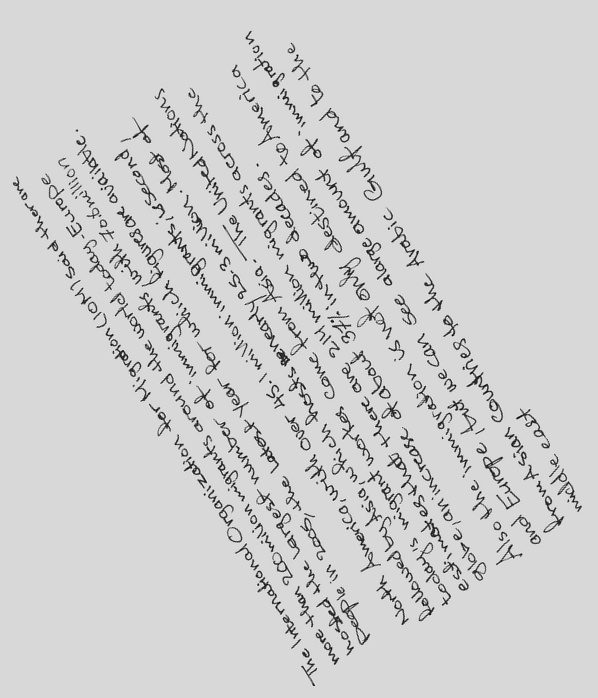 The International Organization for Migration (IOM) said there are
more than 200 million migrants around the world today. Europe
hosted the largest number of immigrants with 70.6 million
people in 2005, the latest year for which figures are available.
North America, with over 45.1 million immigrants, is second,
followed by Asia, which hosts nearly 25.3 million. Most of
today's migrant workers come from Asia. The United Nations
estimates that there are 214 million migrants across the
globe, an increase of about 37% in two decades.
Also the immigration is not only destined to America
and Europe, but we can see a large amount of immigration
from Asian countries to the Arabic Gulf and to the
middle east